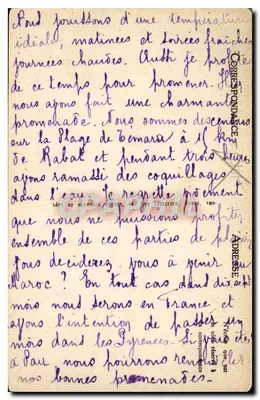 Nous jouissons d'une température
idéale, matinées et soirées fraîches
journées chaudes. Aussi je profite
de ce temps pour promener. Hier
nous avons fait une charmante
promenade. Nous sommes descendus
sur la Plage de Temara à 15 km
de Rabat et pendant trois heures
avons ramassé des coquillages
dans l'eau. Je regrette vivement
que nous ne puissions profiter
ensemble de ces parties de plaisir
Vous déciderez vous à venir au
Maroc ? En tout cas dans dix sept
mois nous serons en France et
avons l'intention de passer un
mois dans les Pyrénées. Si
à Pau nous pourrons
nos bonnes promenades.-
CORRESPONDANCE
ADRESSE
N'écrire que sur
ce côté réservé à